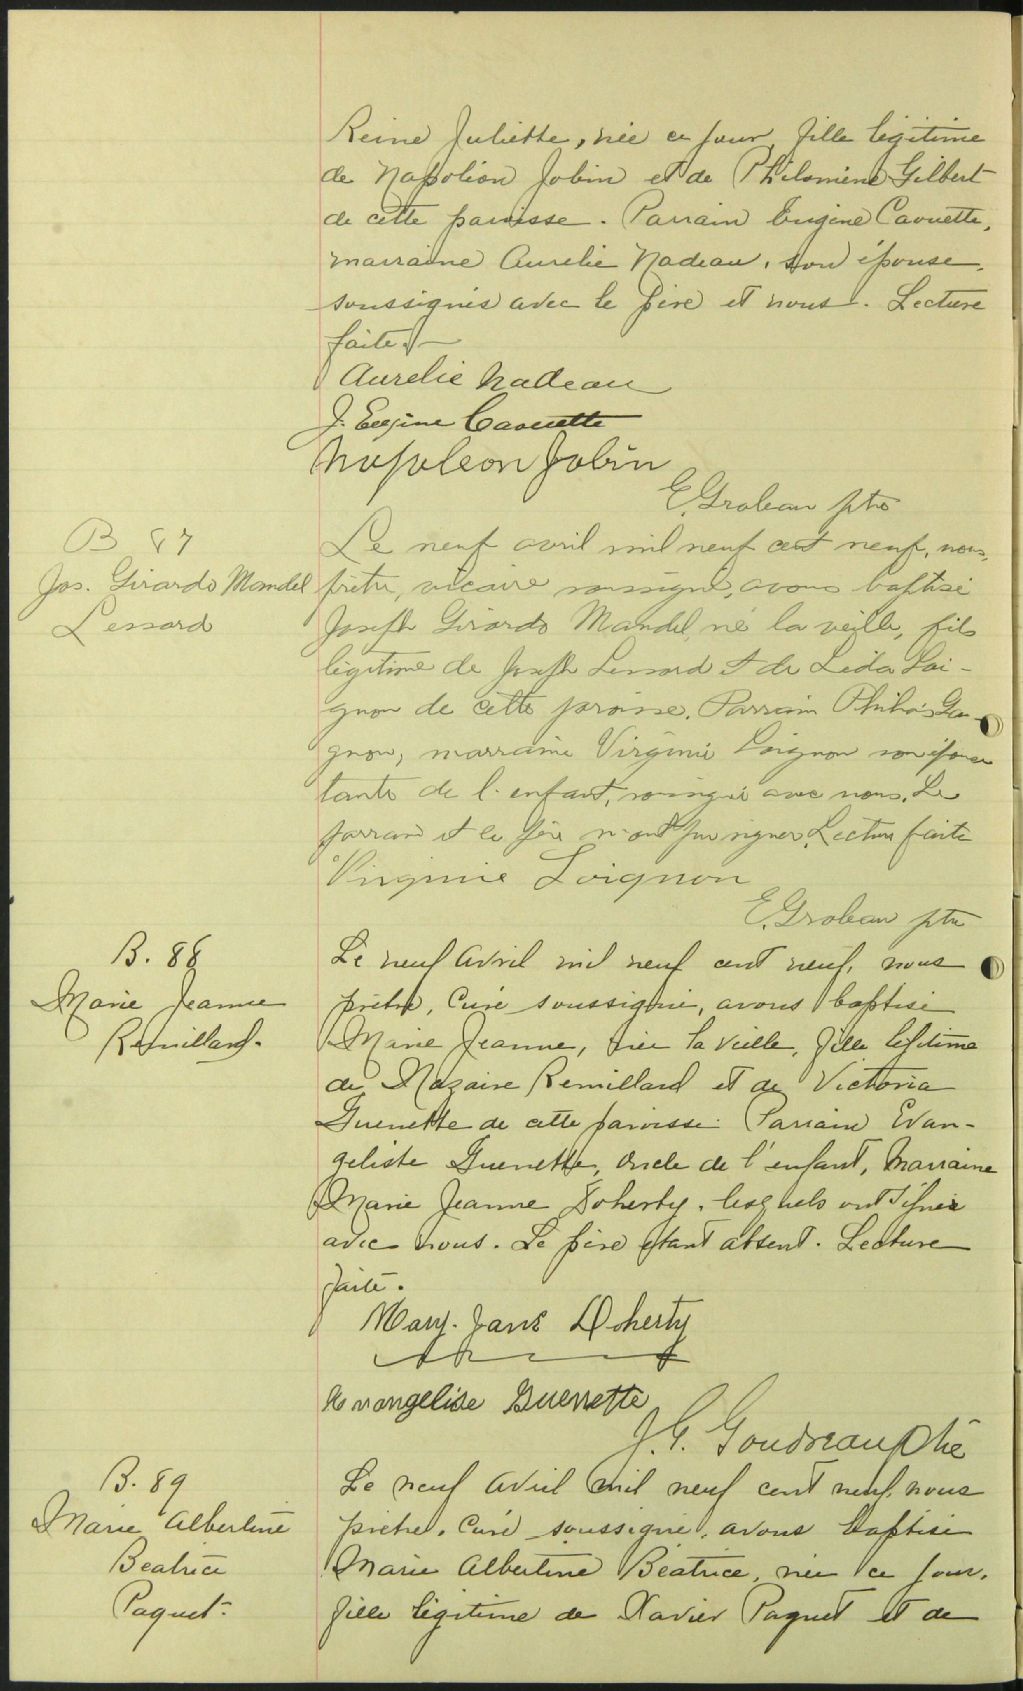 Reine Juliette, née ce jour, fille légitime
de Napoléon Jobin et de Philomène Gilbert
de cette paroisse. Parrain Eugène Caouette,
marraine Aurelie Nadeau, son épouse,
soussignés avec le père et nous. Lecture
faite.
Aurelie Nadeau
J. Eugine Caouette
Napoleon Jobin
E. Groleau ptre
B 87
Jos. Girardo Mandel
Lessard
Le neuf avril mil neuf cent neuf, nous,
prêtre, vicaire soussigné, avons baptisé
Joseph Girardo Mandel, né la veille, fils
légitime de Joseph Lessard et de Leda Loi-
gnon de cette paroisse. Parrain Philias Ga-
gnon, marraine Virginie Loignon son épouse
tante de l'enfant, soussigné avec nous. Le
parrain et le père n'ont pu signer. Lecture faite
Virginie Loignon
E. Groleau ptre
B. 88
Marie Jeanne
Remillard.
Le neuf Avril mil neuf cent neuf, nous
prêtre, Curé soussigné, avons baptisé
Marie Jeanne, née la veille, fille légitime
de Nazaire Remillard et de Victoria
Guenette de cette paroisse. Parrain Evan-
géliste Guenette, oncle de l'enfant, Marraine
Marie Jeanne Doherty, lesquels ont signés
avec nous. Le père étant absent. Lecture
faite.
Mary. Jane Doherty
Evangelise Guenette
J. E. Goudreau Ptre
B. 89
Marie Albertine
Beatrice
Paquet.
Le neuf Avril mil neuf cent neuf, nous
prêtre, Curé soussigné, avons baptisé
Marie Albertine Béatrice, née ce jour,
fille légitime de Xavier Paquet et de